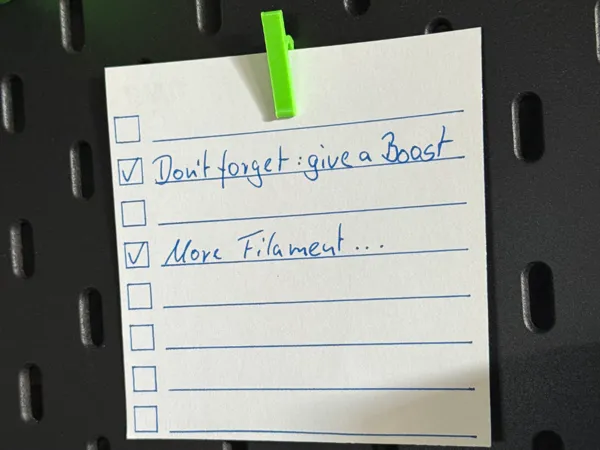 Don't forget: give a Boost
More Filament...